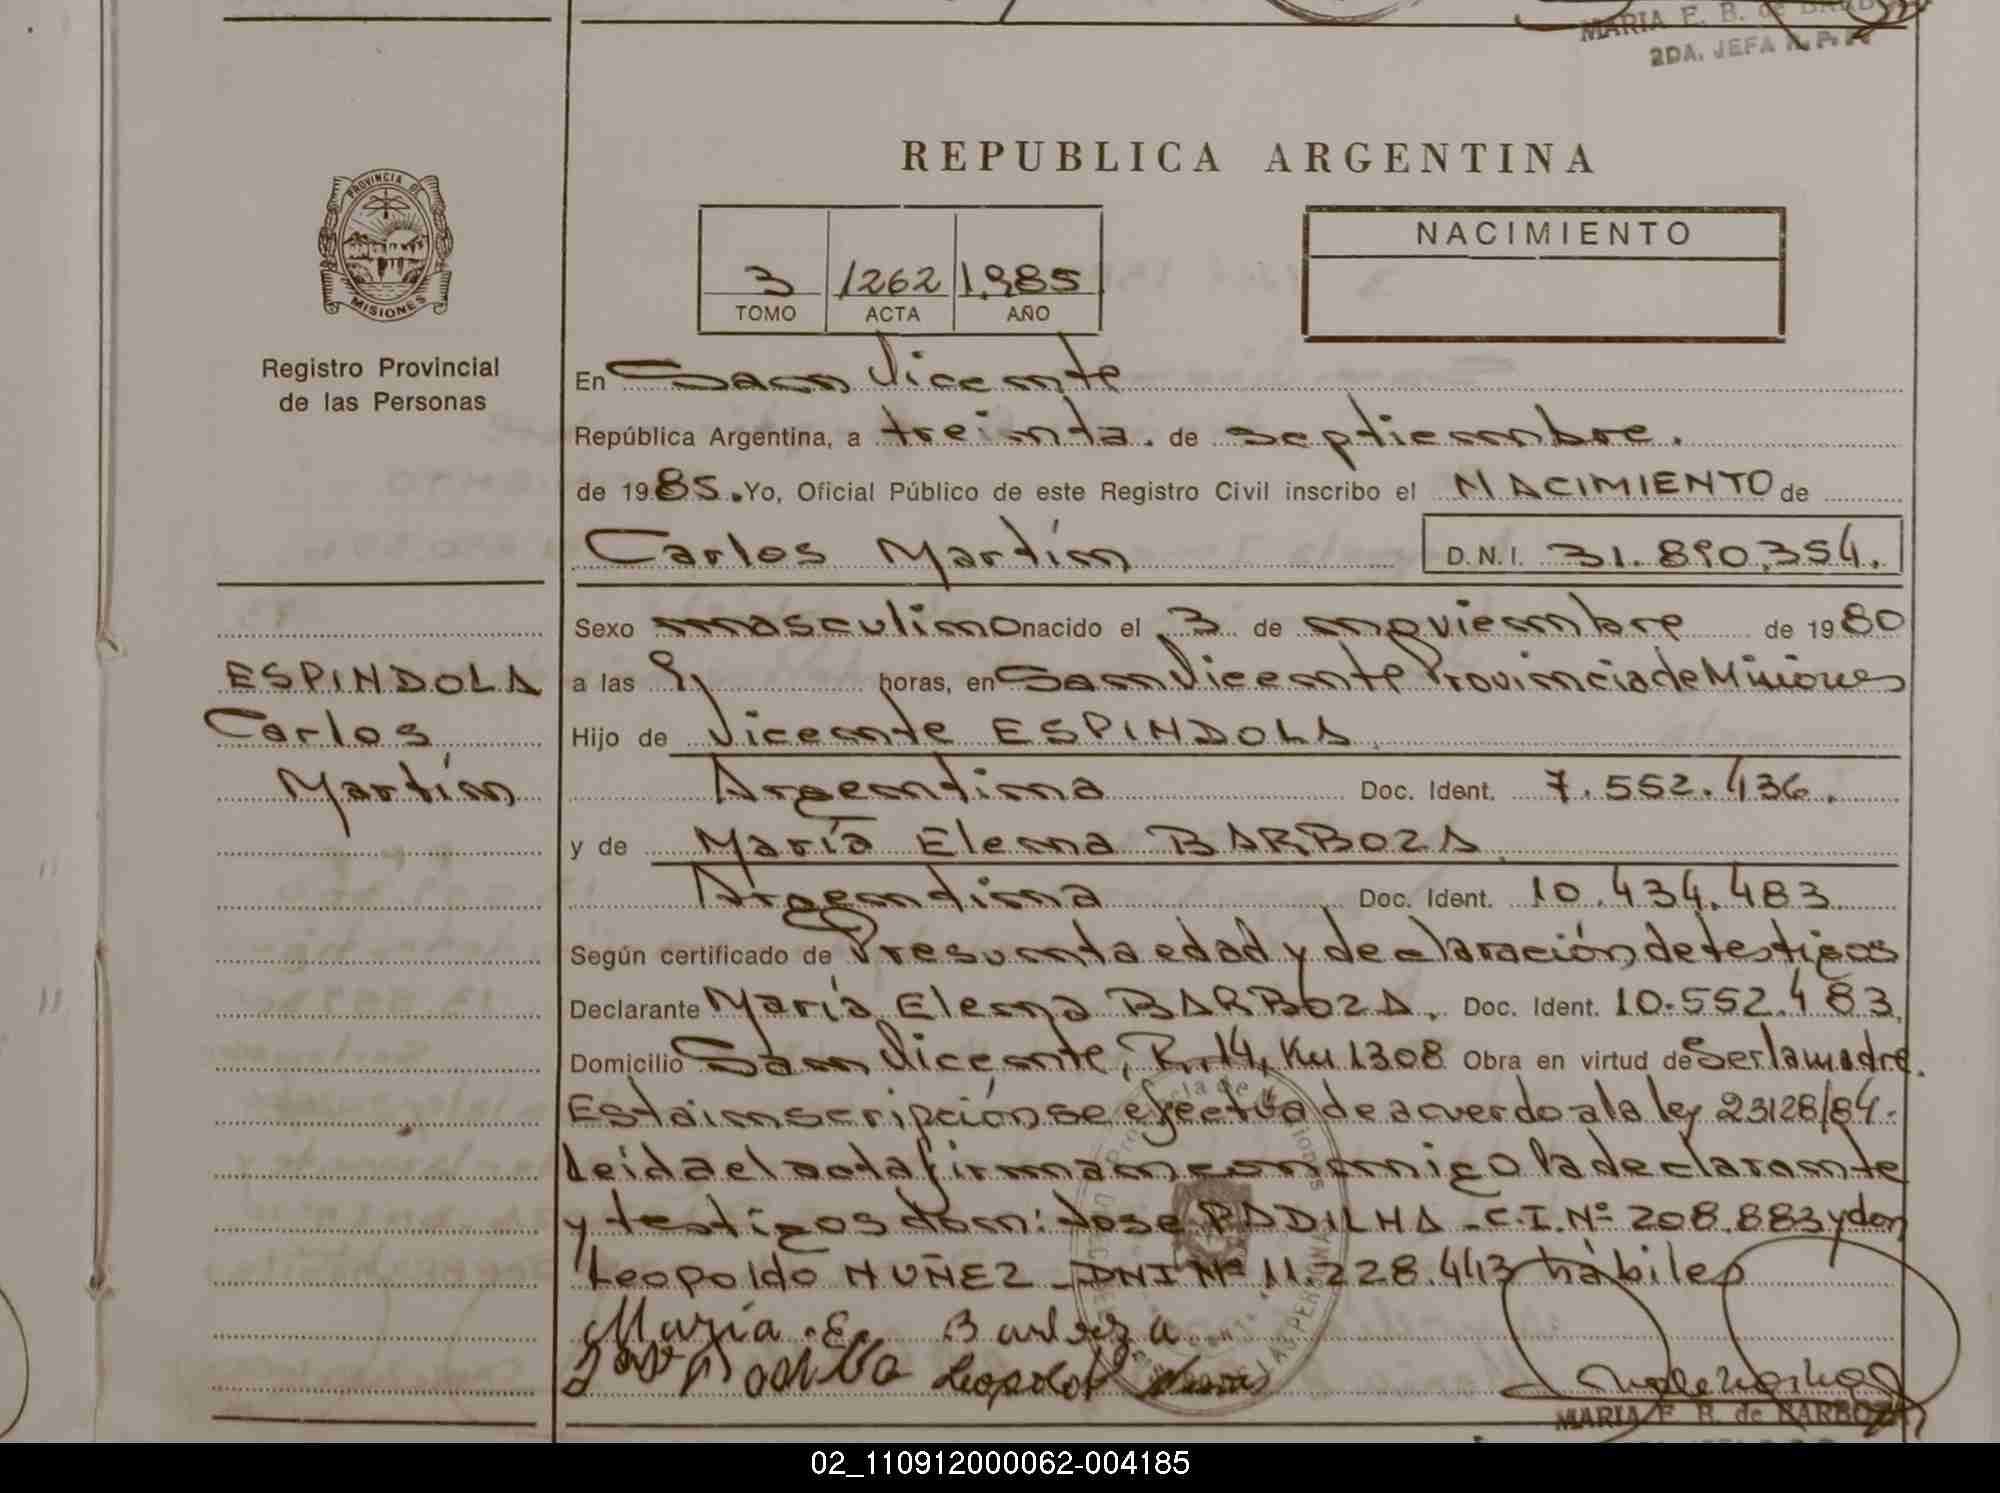 MARIA E. B. de BARBOZA
2DA. JEFA R. P. P.
REPUBLICA ARGENTINA
PROVINCIA DE
MISIONES
Registro Provincial
de las Personas
3 1262 1.985
TOMO ACTA AÑO
NACIMIENTO
En San Vicente
República Argentina, a treinta. de septiembre.
de 1985. Yo, Oficial Público de este Registro Civil inscribo el NACIMIENTO de
Carlos Martín D.N.I. 31.890.354.
ESPINDOLA
Carlos
Martín
Sexo masculino nacido el 3 de noviembre de 1980
a las 9 horas, en San Vicente Provincia de Misiones
Hijo de Vicente ESPINDOLA
Argentina Doc. Ident. 7.552.436.
y de María Elena BARBOZA
Argentina Doc. Ident. 10.434.483
Según certificado de Presunta edad y declaración de testigos
Declarante María Elena BARBOZA. Doc. Ident. 10.552.483.
Domicilio San Vicente, R. 14, Km 1308 Obra en virtud de Ser la madre.
Esta inscripción se efectúa de acuerdo a la ley 23128/84.
Leida el acta firman conmigo la declarante
y testigos don: Jose PADILHA - C.I. Nº 208.883 y don
Leopoldo NUÑEZ - DNI Nº 11.228.443 hábiles
María E. Barboza
Jose Padilla Leopoldo Nunes
MARIA E. B. de BARBOZA
02_110912000062-004185